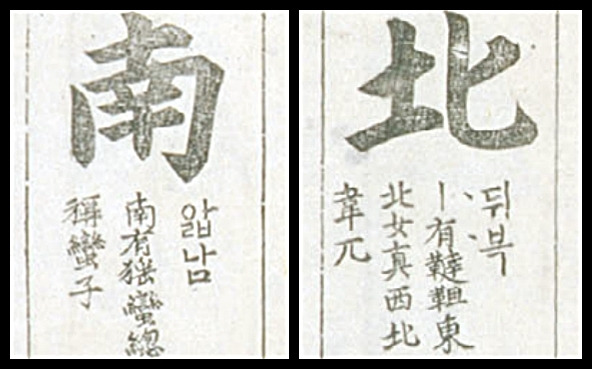 南
앏남
南有猺蠻總
稱蠻子
北
뒤븍
丨有韃靼東
北女真西北
韋兀